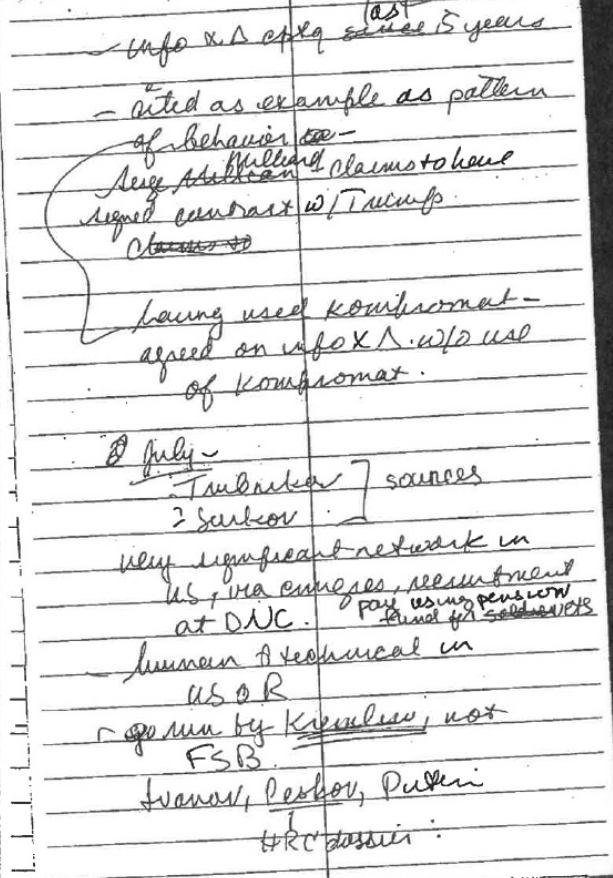 last
– info XΔ cptg since 5 years
– cited as example as pattern
of behavior –
Millian
Serge Millian claims to have
signed contract w/ Trump.
Claims to
having used kompromat –
agreed on info XΔ. w/o use
of kompromat.
July –
: Trubnikov ] sources
: Surkov :
very significant network in
US, via emigres, recruitment
at DNC. pay using pension
fund for soldiers vets
– human & technical in
US & R
– op run by Kremlin, not
FSB.
Ivanov, Peskov, Putin
HRC dossier :